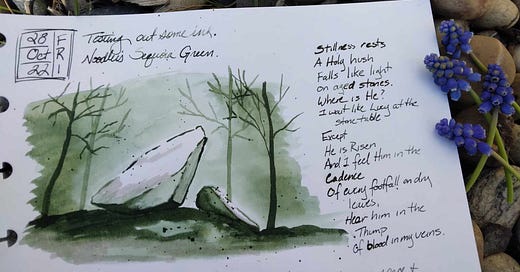 28 F
Oct R
22 I
Testing out some ink.
Noodlers Sequoia Green.
Stillness rests
A Holy hush
Falls like light
on aged stones.
Where is He?
I wait like Lucy at the
stone table
Except
He is Risen
And I feel Him in the
Cadence
Of every footfall on dry
leaves,
Hear him in the
Thump
Of blood in my veins.